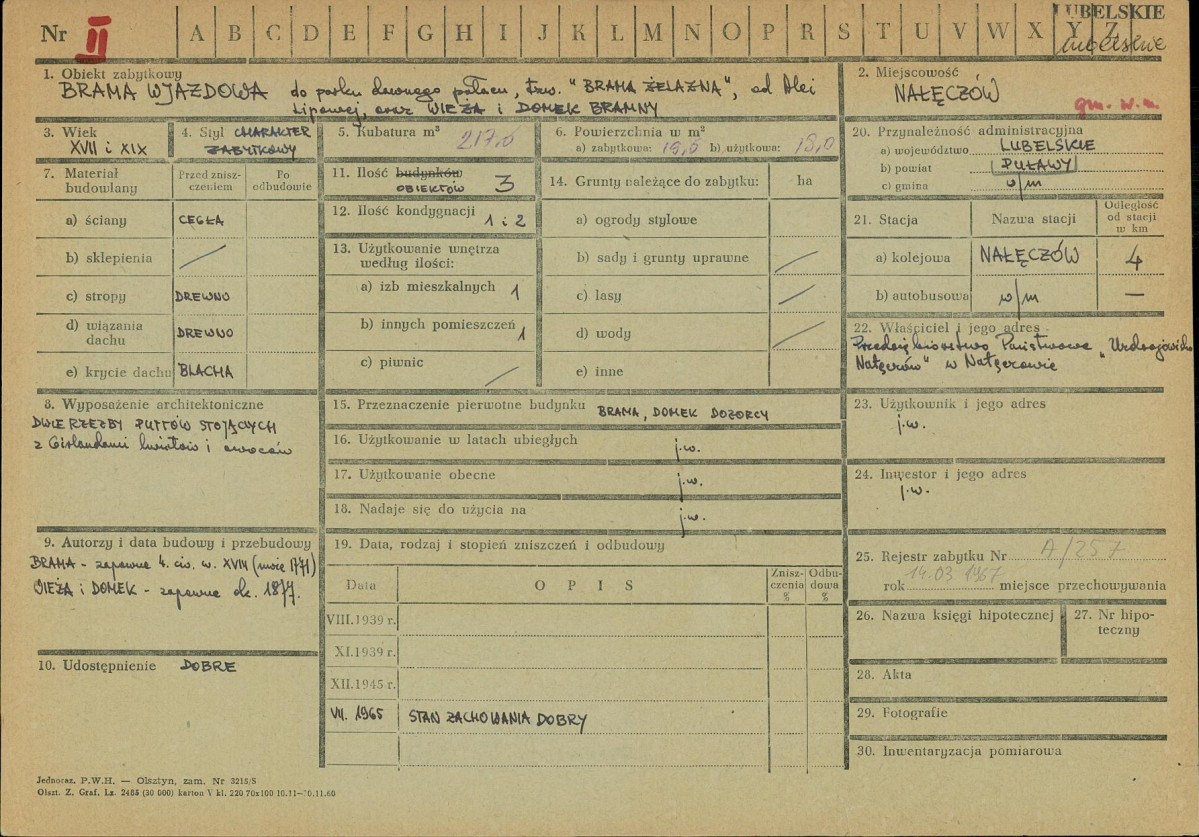 Nr II A B C D E F G H I J K L M N O P R S T U V W X Y Z LUBELSKIE
lubelskie
1. Obiekt zabytkowy
BRAMA WJAZDOWA do parku dawnego pałacu, tzw. "BRAMA ŻELAZNA", od Alei
Lipowej, oraz WIEŻA i DOMEK BRAMNY
2. Miejscowość
NAŁĘCZÓW
gm. w.m.
3. Wiek
XVII i XIX
4. Styl CHARAKTER
ZABYTKOWY
5. Kubatura m³
217,0
6. Powierzchnia w m²
a) zabytkowa: 19,6 b) użytkowa: 15,0
20. Przynależność administracyjna
a) województwo LUBELSKIE
b) powiat PUŁAWY
c) gmina w/m
7. Materiał
budowlany
Przed znisz-
czeniem
Po
odbudowie
a) ściany CEGŁA
b) sklepienia
c) stropy DREWNO
d) wiązania
dachu DREWNO
e) krycie dachu BLACHA
11. Ilość budynków
OBIEKTÓW 3
12. Ilość kondygnacji
1 i 2
13. Użytkowanie wnętrza
według ilości:
a) izb mieszkalnych 1
b) innych pomieszczeń 1
c) piwnic
14. Grunty należące do zabytku: ha
a) ogrody stylowe
b) sady i grunty uprawne
c) lasy
d) wody
e) inne
21. Stacja Nazwa stacji
Odległość
od stacji
w km
a) kolejowa NAŁĘCZÓW 4
b) autobusowa w/m —
22. Właściciel i jego adres
Przedsiębiorstwo Państwowe „Uzdrowisko
Nałęczów" w Nałęczowie
8. Wyposażenie architektoniczne
DWIE RZEŹBY PUTTÓW STOJĄCYCH
z Girlandami kwiatów i owoców
15. Przeznaczenie pierwotne budynku BRAMA, DOMEK DOZORCY
16. Użytkowanie w latach ubiegłych j.w.
17. Użytkowanie obecne j.w.
18. Nadaje się do użycia na j.w.
23. Użytkownik i jego adres
j.w.
24. Inwestor i jego adres
j.w.
9. Autorzy i data budowy i przebudowy
BRAMA - zapewne 4. ćw. w. XVIII (może 1771)
WIEŻA i DOMEK - zapewne ok. 1877.
10. Udostępnienie DOBRE
19. Data, rodzaj i stopień zniszczeń i odbudowy
Data O P I S
Znisz-
czenia
%
Odbu-
dowa
%
VIII.1939 r.
XI.1939 r.
XII.1945 r.
VII. 1965 STAN ZACHOWANIA DOBRY
25. Rejestr zabytku Nr A/257
rok 14.03 1967 miejsce przechowywania
26. Nazwa księgi hipotecznej
27. Nr hipo-
teczny
28. Akta
29. Fotografie
30. Inwentaryzacja pomiarowa
Jednoraz. P.W.H. — Olsztyn, zam. Nr 3215/S
Olszt. Z. Graf. Lz. 2485 (30 000) karton V kl. 220 70x100 10.11—30.11.60